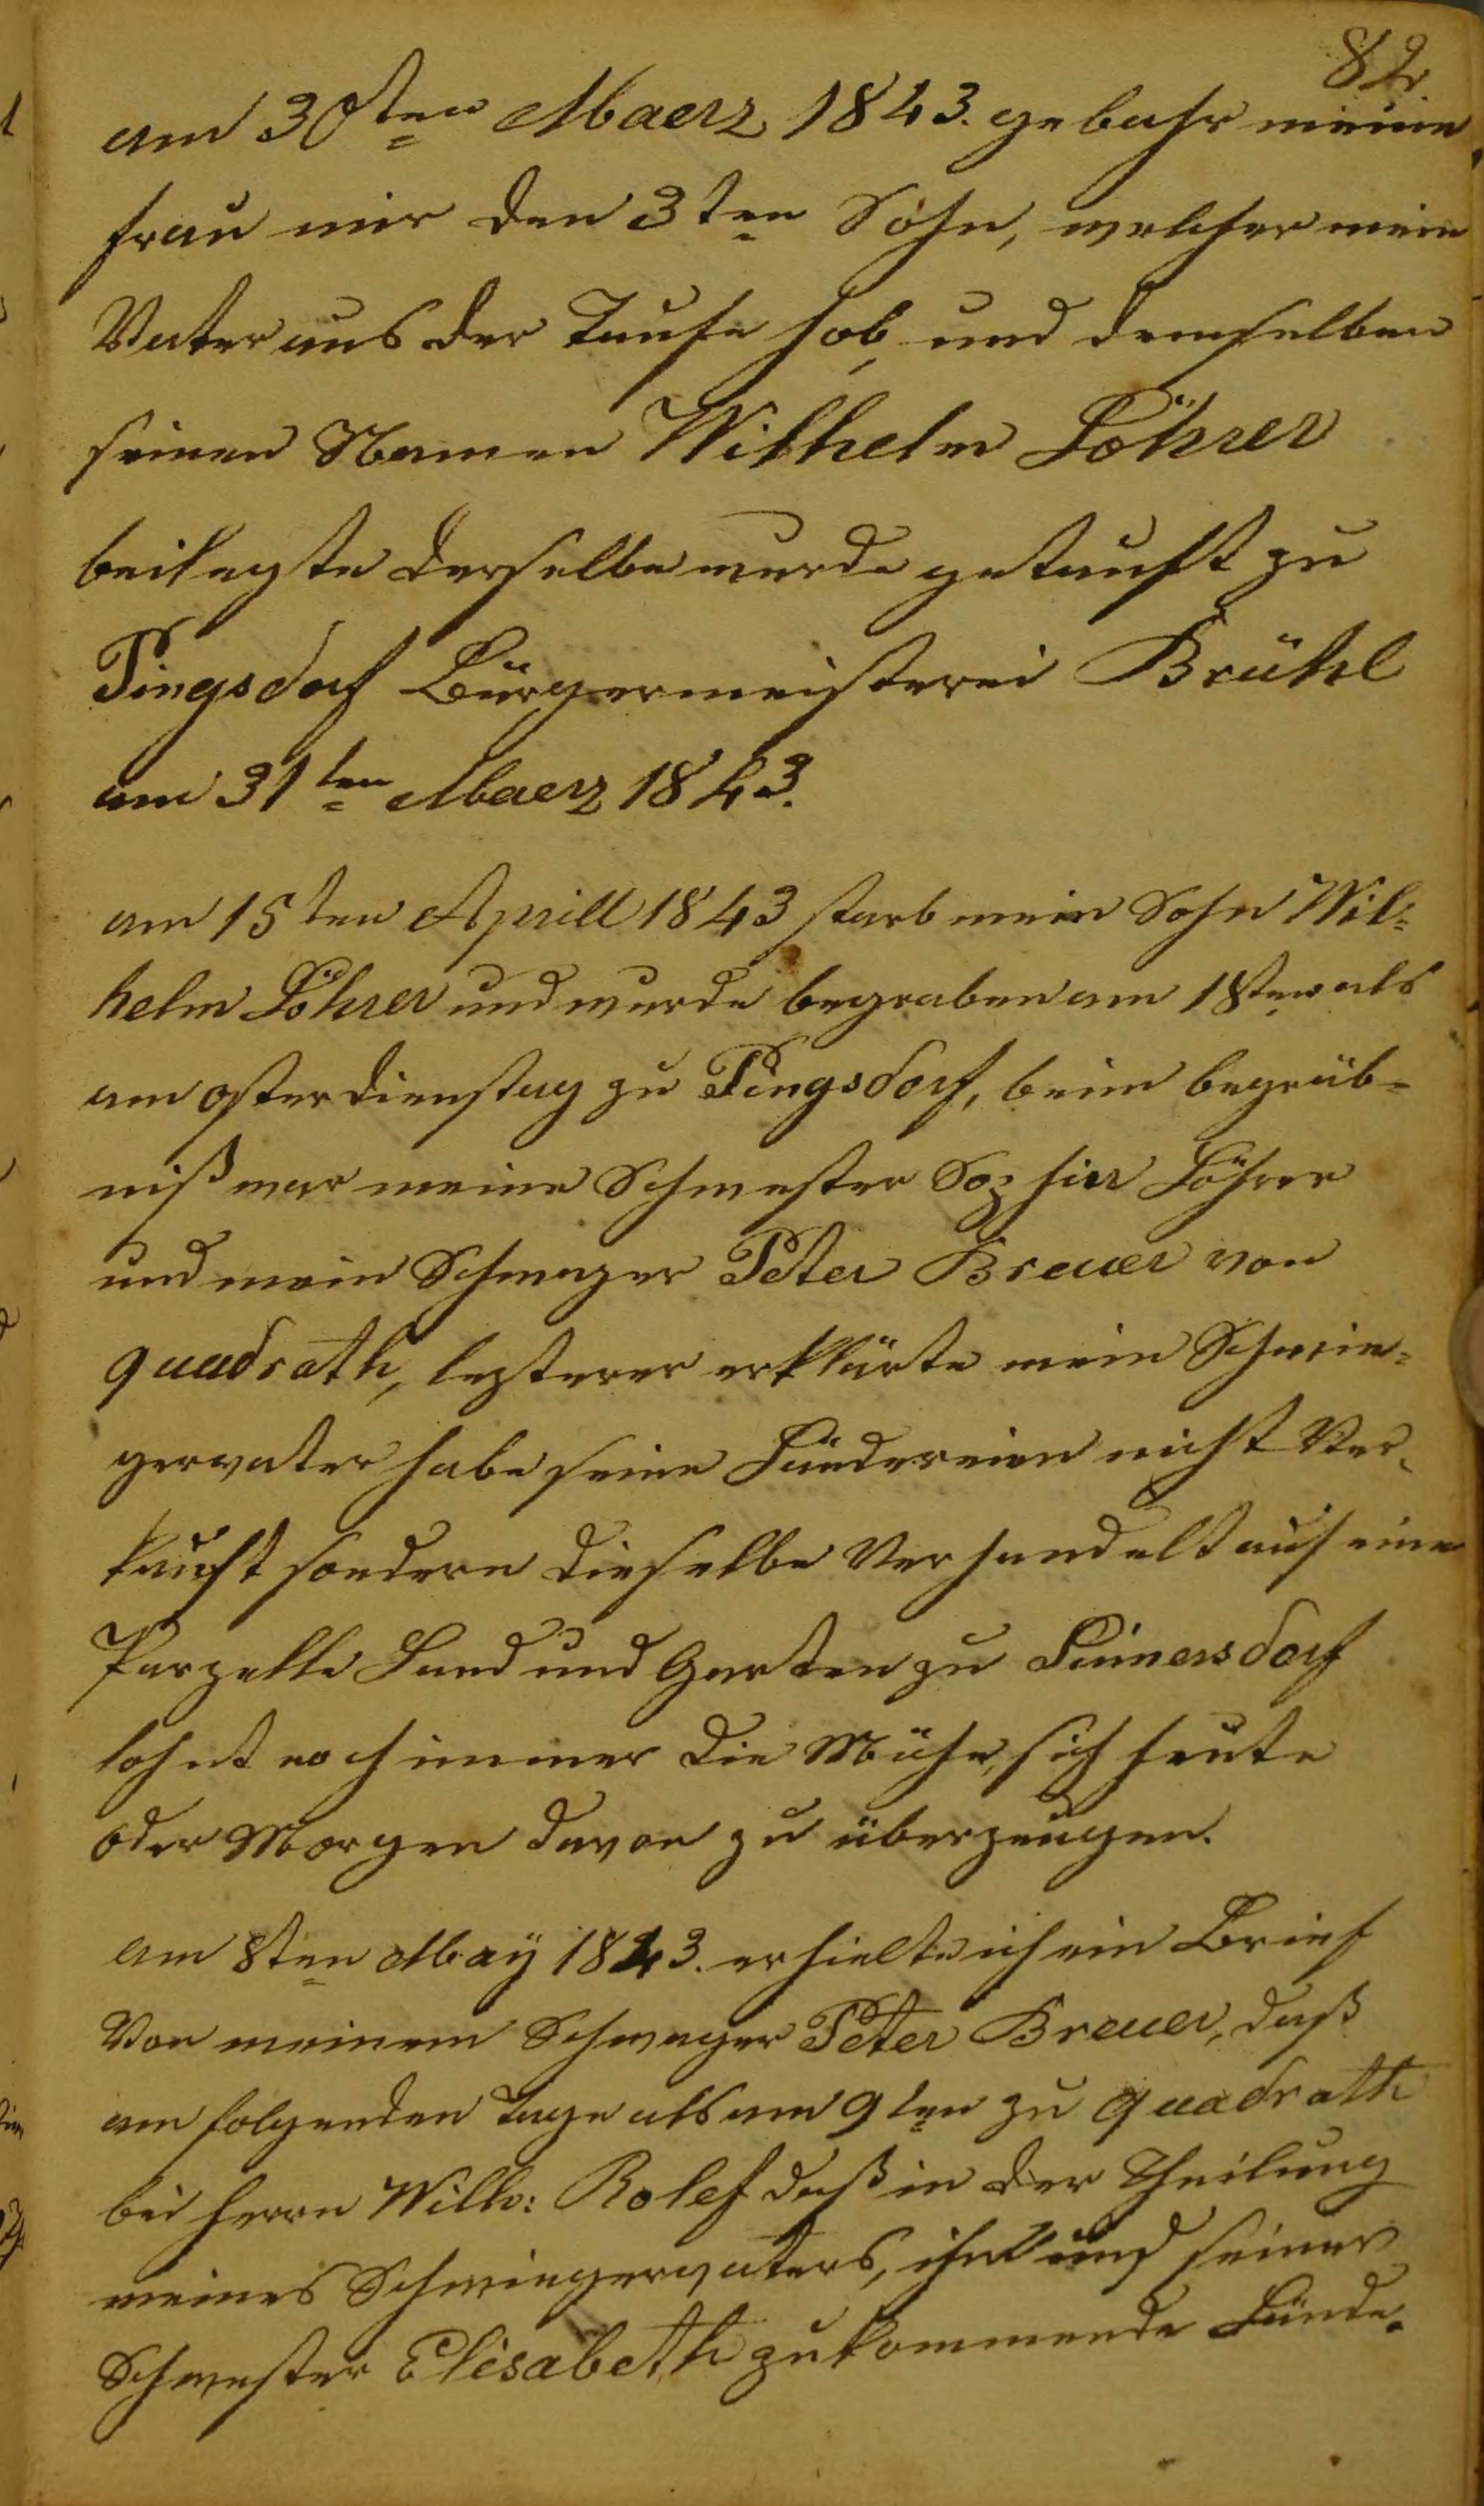 82.
am 30ten Maerz 1843. gebahr meine
frau mir den 3ten Sohn, welcher mein
Vater aus der Taufe hob, und demselben
seinen Namen Wilhelm Löhrer
beilegte derselbe wurde getauft zu
Pingsdorf Bürgermeisterei Brühl
am 31ten Maerz 1843.
am 15ten Aprill 1843 starb mein Sohn Wil=
helm Löhrer und wurde begraben am 18ten als
am osterdienstag zu Pingsdorf, beim begräb=
niß war meine Schwester Sophia Löhrer
und mein Schwager Peter Breuer von
quadrath, lezterer erklärte mein Schwie=
gervater habe seine Ländereien nicht Ver=
kauft sondern dieselbe Verhandelt auf eine
Parzelle Land und Garten zu
lohnt noch immer die Mühe, sich heute
oder Morgen davon zu überzeugen.
am 8ten May 1843. erhielte ich ein Brief
Von meinem Schwager Peter Breuer, daß
am folgenden Tage als am 9ten zu quadrath
bei herrn Wilh: Rolef daß in der Theilung
meines Schwiegervaters, ihm und seiner
Schwester Elisabeth zukommende Lände=